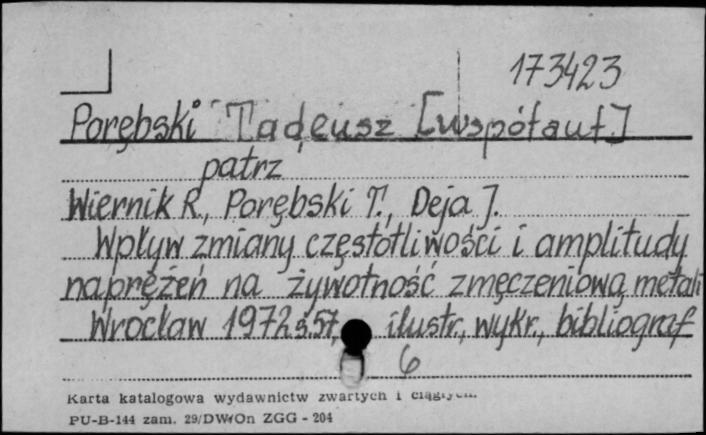 173423
Porębski Tadeusz [współaut]
patrz
Wiernik R., Porębski T., Deja J.
Wpływ zmiany częstotliwości i amplitudy
naprężeń na żywotność zmęczeniową metali
Wrocław 1972 s.57, ilustr., wykr., bibliograf
6
Karta katalogowa wydawnictw zwartych i ciągłych.
PU-B-144 zam. 29/DWrOn ZGG - 204